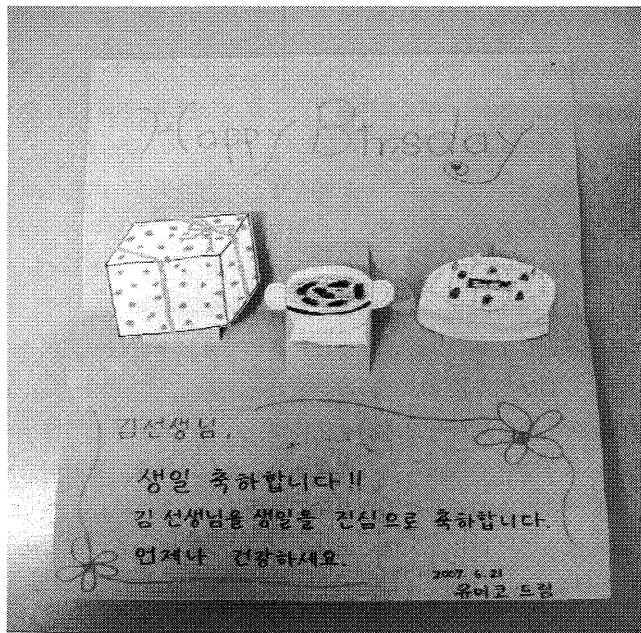 Happy Birsday
김선생님,
생일 축하합니다!!
김 선생님을 생일을 진심으로 축하합니다.
언제나 건강하세요.
2007. 6. 21
유미코 드림